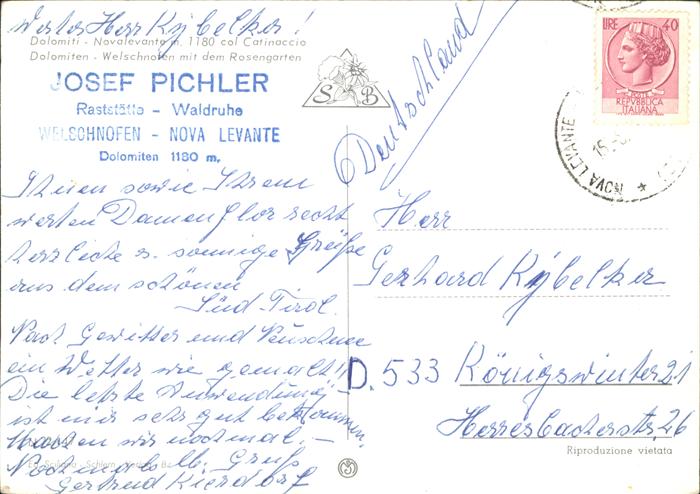 Werter Herr Kybelker!
Dolomiti - Novalevante m. 1180 col Catinaccio
Dolomiten - Welschnofen mit dem Rosengarten
JOSEF PICHLER
Raststätte - Waldruhe
WELSCHNOFEN - NOVA LEVANTE
Dolomiten 1180 m.
S B
Ihnen sowie Ihrem
werten Damenflor recht
herzliche u. sonnige Grüße
aus dem schönen
Süd Tirol.
Nach Gewitter und
ein Wetter wie gemalt!!
Die letzte Anwendung
ist mir sehr gut bekommen.
wir nochmal. –
Nochmals lb. Gruß
Gertrud Kierdorf
Deutschland
LIRE 40
POSTE
REPVBBLICA
ITALIANA
NOVA LEVANTE
Herr
Gerhard Kybelker
D. 533 Königswinter 21
Herresbacherstr. 26
Riproduzione vietata